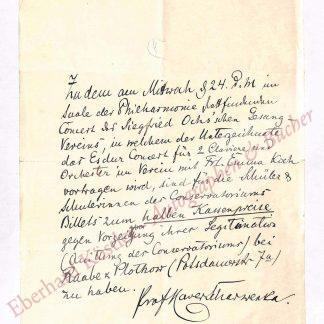 Zu dem am Mittwoch d 24. d. M im
Saale der Philharmonie stattfindenden
Concert des Siegfried Ochs'schen Gesang-
Vereins, in welchem der Unterzeichnete
das Es dur Concert für 2 Claviere und
Orchester im Verein mit Frl. Emma Koch
vortragen wird, sind für die Schüler &
Schülerinnen des Conservatoriums
Billets zum halben Kassenpreise
gegen Vorzeigung ihrer Legitimation
(Quittung des Conservatoriums) bei
Raabe & Plothow (Potsdamerstr 7a)
zu haben.
Prof Xaver Scharwenka
Eberhard Köstler Autographen & Bücher